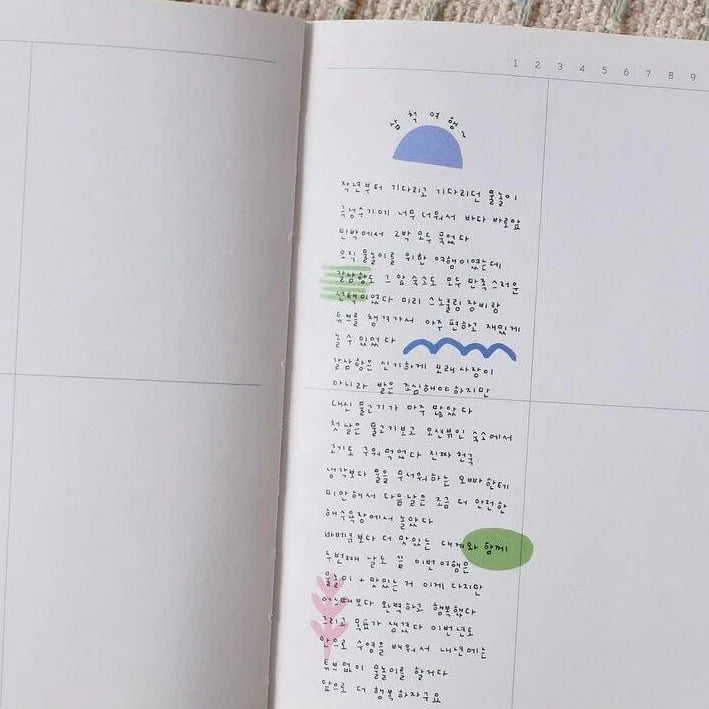 1 2 3 4 5 6 7 8 9
삼척여행 2
작년부터 기다리고 기다리던 물놀이
극성수기에 너무 더워서 바다 바로앞
민박에서 2박 모두 묵었다
오직 물놀이를 위한 여행이였는데
갈남항도 그 앞 숙소도 모두 만족스러운
선택이였다 미리 스노쿨링 장비랑
튜브를 챙겨가서 아주 편하고 재밌게
놀 수 있었다
갈남항은 신기하게 모래사장이
아니라 발은 조심해야하지만
대신 물고기가 아주 많았다
첫날은 물고기보고 오션뷰인 숙소에서
고기도 구워먹었다 진짜 천국
생각보다 물을 무서워하는 오빠한테
미안해서 다음날은 조금 더 안전한
해수욕장에서 놀았다
바베큐보다 더 맛있는 대게와 함께
두번째 날도 끝 이번여행은
물놀이 + 맛있는거 이게 다지만
어느때보다 완벽하고 행복했다
그리고 목표가 생겼다 이번년도
앞으로 수영을 배워서 내년에는
튜브없이 물놀이를 할거다
앞으로 더 행복하자구요